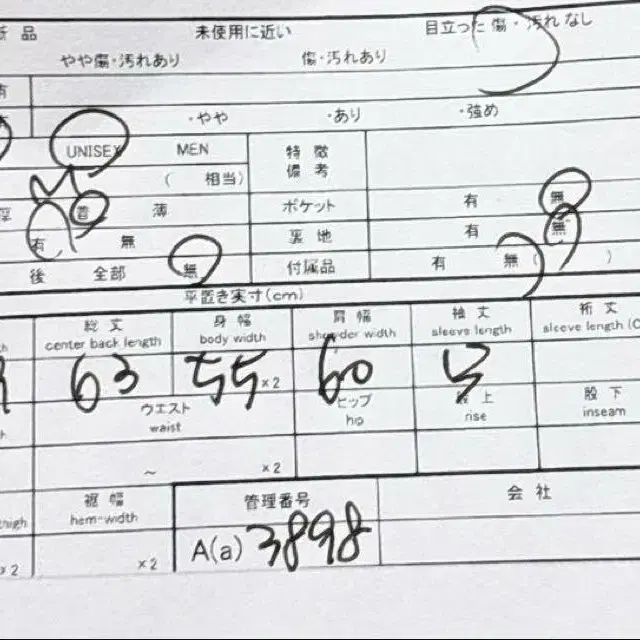 新品 未使用に近い 目立った傷・汚れなし
やや傷・汚れあり 傷・汚れあり
有
・やや ・あり ・強め
UNISEX MEN 特徴
備考
M ( 相当)
普 薄 ポケット 有 無
有 無 裏地 有 無
後 全部 無 付属品 有 無 ( )
平置き実寸(cm)
総丈 身幅 肩幅 袖丈 裄丈
center back length body width shoulder width sleeve length sleeve length (C
63 55 ×2 60
ウエスト ヒップ 股上 股下
waist hip rise inseam
~ ×2
裾幅 管理番号 会社
thigh hem-width
×2 ×2 A(a) 3898